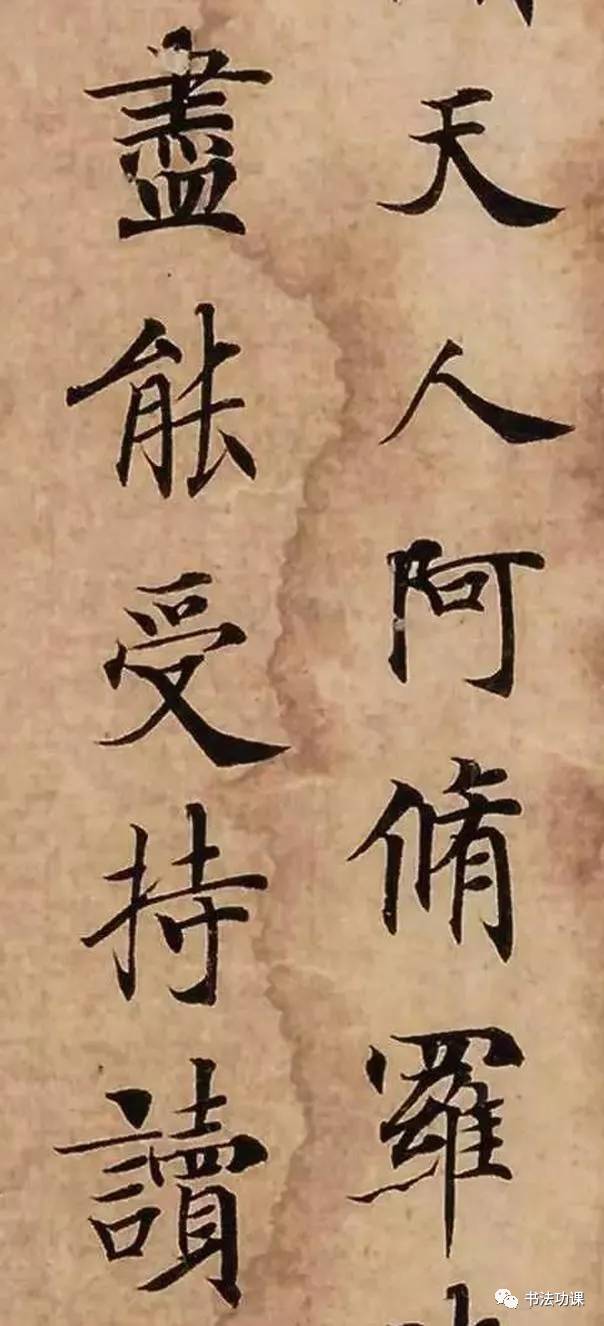 天人阿脩羅
盡能受持讀
书法功课